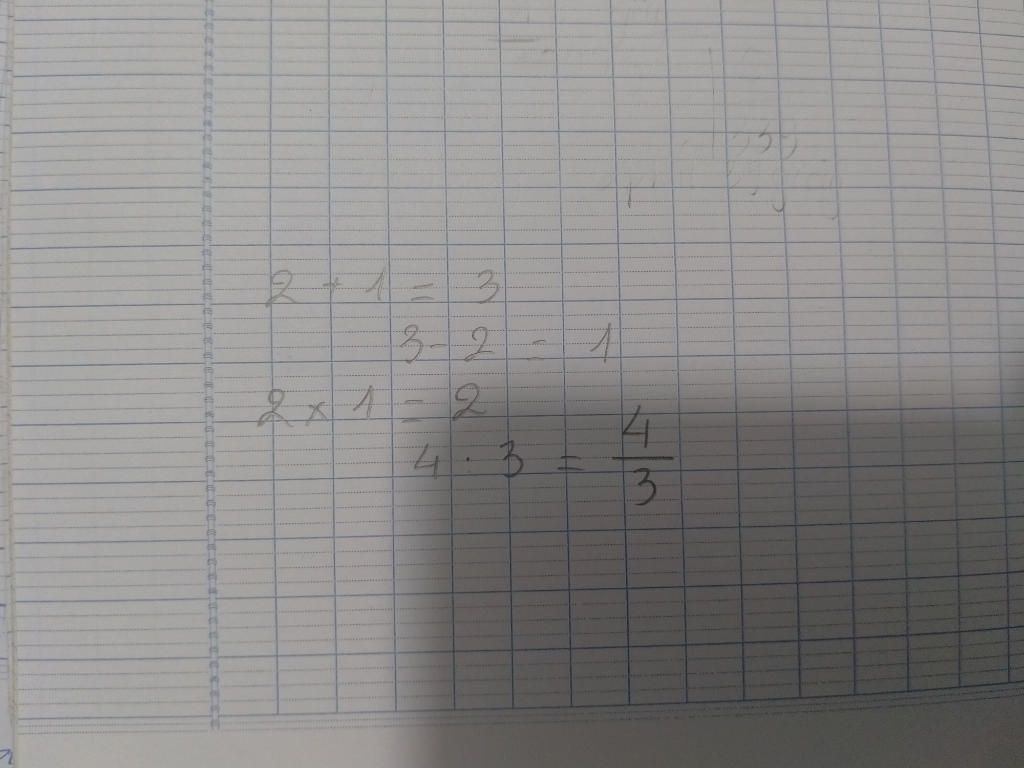 2 + 1 = 3
3 - 2 = 1
2 x 1 = 2
4 : 3 = 4/3